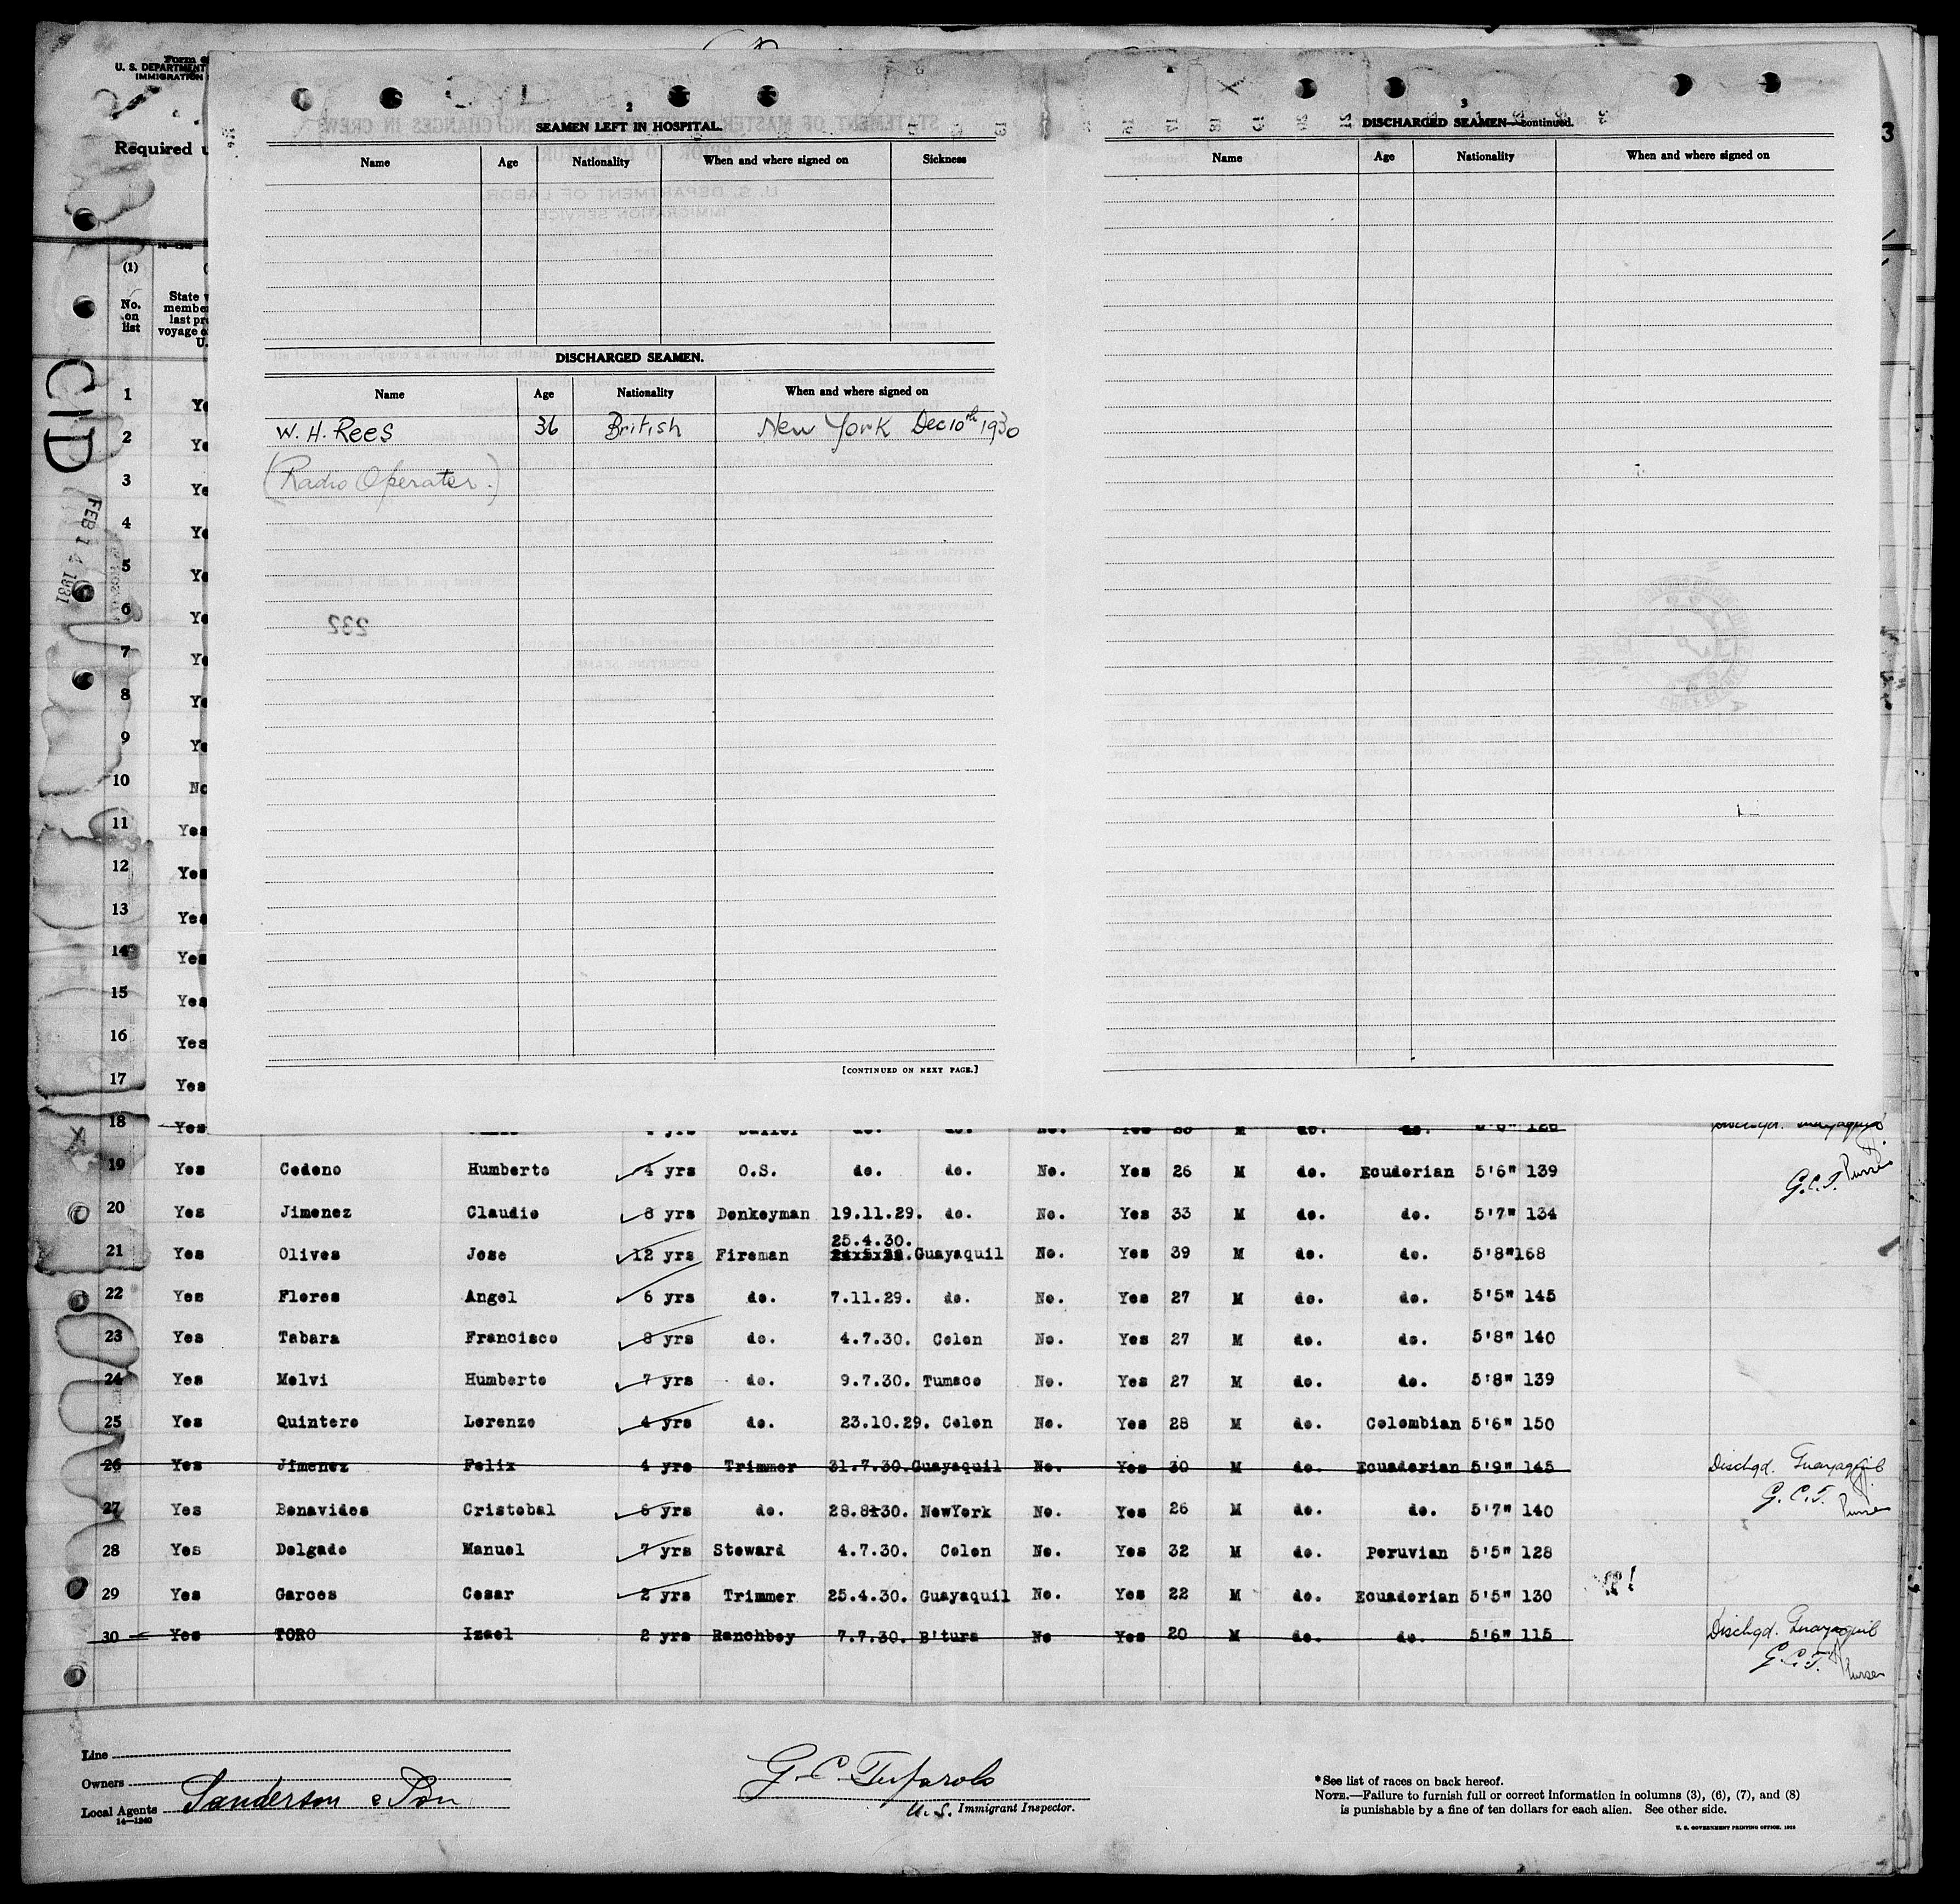 Form
U. S. DEPARTMENT
IMMIGRATION
Required
3
2
SEAMEN LEFT IN HOSPITAL.
Name Age Nationality When and where signed on Sickness
DISCHARGED SEAMEN.
Name Age Nationality When and where signed on
W. H. Rees 36 British New York Dec 10th 1930
(Radio Operator.)
232
[CONTINUED ON NEXT PAGE.]
3
DISCHARGED SEAMEN—continued.
Name Age Nationality When and where signed on
(1)
No. on list
State
member
last pre
voyage o
U.
CID
FEB 14 1931
1 Ye
2 Ye
3 Ye
4 Ye
5 Ye
6 Ye
7 Ye
8 Ye
9 Ye
10 No
11 Yes
12 Yes
13 Yes
14 Yes
15 Yes
16 Yes
17 Yes
18 Yes yrs do. do. No. Yes M do. do. 126 Dischgd. Guayaquil
G.C.T. Purser
19 Yes Cedeno Humberto 4 yrs O.S. do. do. No. Yes 26 M do. Ecuaderian 5'6" 139
20 Yes Jimenez Claudio 8 yrs Donkeyman 19.11.29. do. No. Yes 33 M do. do. 5'7" 134
25.4.30.
21 Yes Olives Jose 12 yrs Fireman Guayaquil No. Yes 39 M do. do. 5'8" 168
22 Yes Flores Angel 6 yrs do. 7.11.29. do. No. Yes 27 M do. do. 5'5" 145
23 Yes Tabara Francisco 8 yrs do. 4.7.30. Colon No. Yes 27 M do. do. 5'8" 140
24 Yes Melvi Humberto 7 yrs do. 9.7.30. Tumaco No. Yes 27 M do. do. 5'8" 139
25 Yes Quintero Lorenzo 4 yrs do. 23.10.29. Colon No. Yes 28 M do. Colombian 5'6" 150
26 Yes Jimenez Felix 4 yrs Trimmer 31.7.30. Guayaquil No. Yes 30 M do. Ecuaderian 5'9" 145 Dischgd. Guayaquil
G.C.T. Purser
27 Yes Benavides Cristobal 6 yrs do. 28.8.30. NewYork No. Yes 26 M do. do. 5'7" 140
28 Yes Delgado Manuel 7 yrs Steward 4.7.30. Colon No. Yes 32 M do. Peruvian 5'5" 128
29 Yes Garces Cesar 2 yrs Trimmer 25.4.30. Guayaquil No. Yes 22 M do. Ecuaderian 5'5" 130
30 Yes TORO Izael 2 yrs Ranchboy 7.7.30. B'tura No Yes 20 M do. do. 5'6" 115 Dischgd. Guayaquil
G.C.T. Purser
Line
Owners
Local Agents Sanderson & Son
14—1240
G. C.
U.S. Immigrant Inspector.
* See list of races on back hereof.
NOTE.—Failure to furnish full or correct information in columns (3), (6), (7), and (8)
is punishable by a fine of ten dollars for each alien. See other side.
U. S. GOVERNMENT PRINTING OFFICE